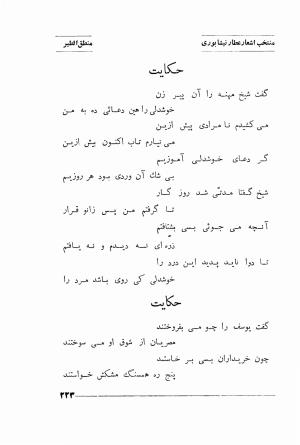 منتخب اشعار عطار نیشابوری
منطق الطیر
حکایت
گفت شیخ مهنه را آن پیر زن
خوشدلی را هین دعائی ده به من
می کشیدم نا مرادی پیش ازین
می نیارم تاب اکنون بیش ازین
گر دعای خوشدلی آموزیم
بی شك آن وردی بود هر روزیم
شیخ گفتا مدتی شد روز گار
تا گرفتم من پس زانو قرار
آنچه می جوئی بسی بشتافتم
ذره‌ای نـه دیـدم و نـه یـافتم
تا دوا ناید پدید این درد را
خوشدلی کی روی باشد مرد را
حکایت
گفت یوسف را چو می بفروختند
مصریان از شوق او می سوختند
چون خریداران بسی بر خاستند
پنج ره همسنگ مشکش خواستند
۲۲۳